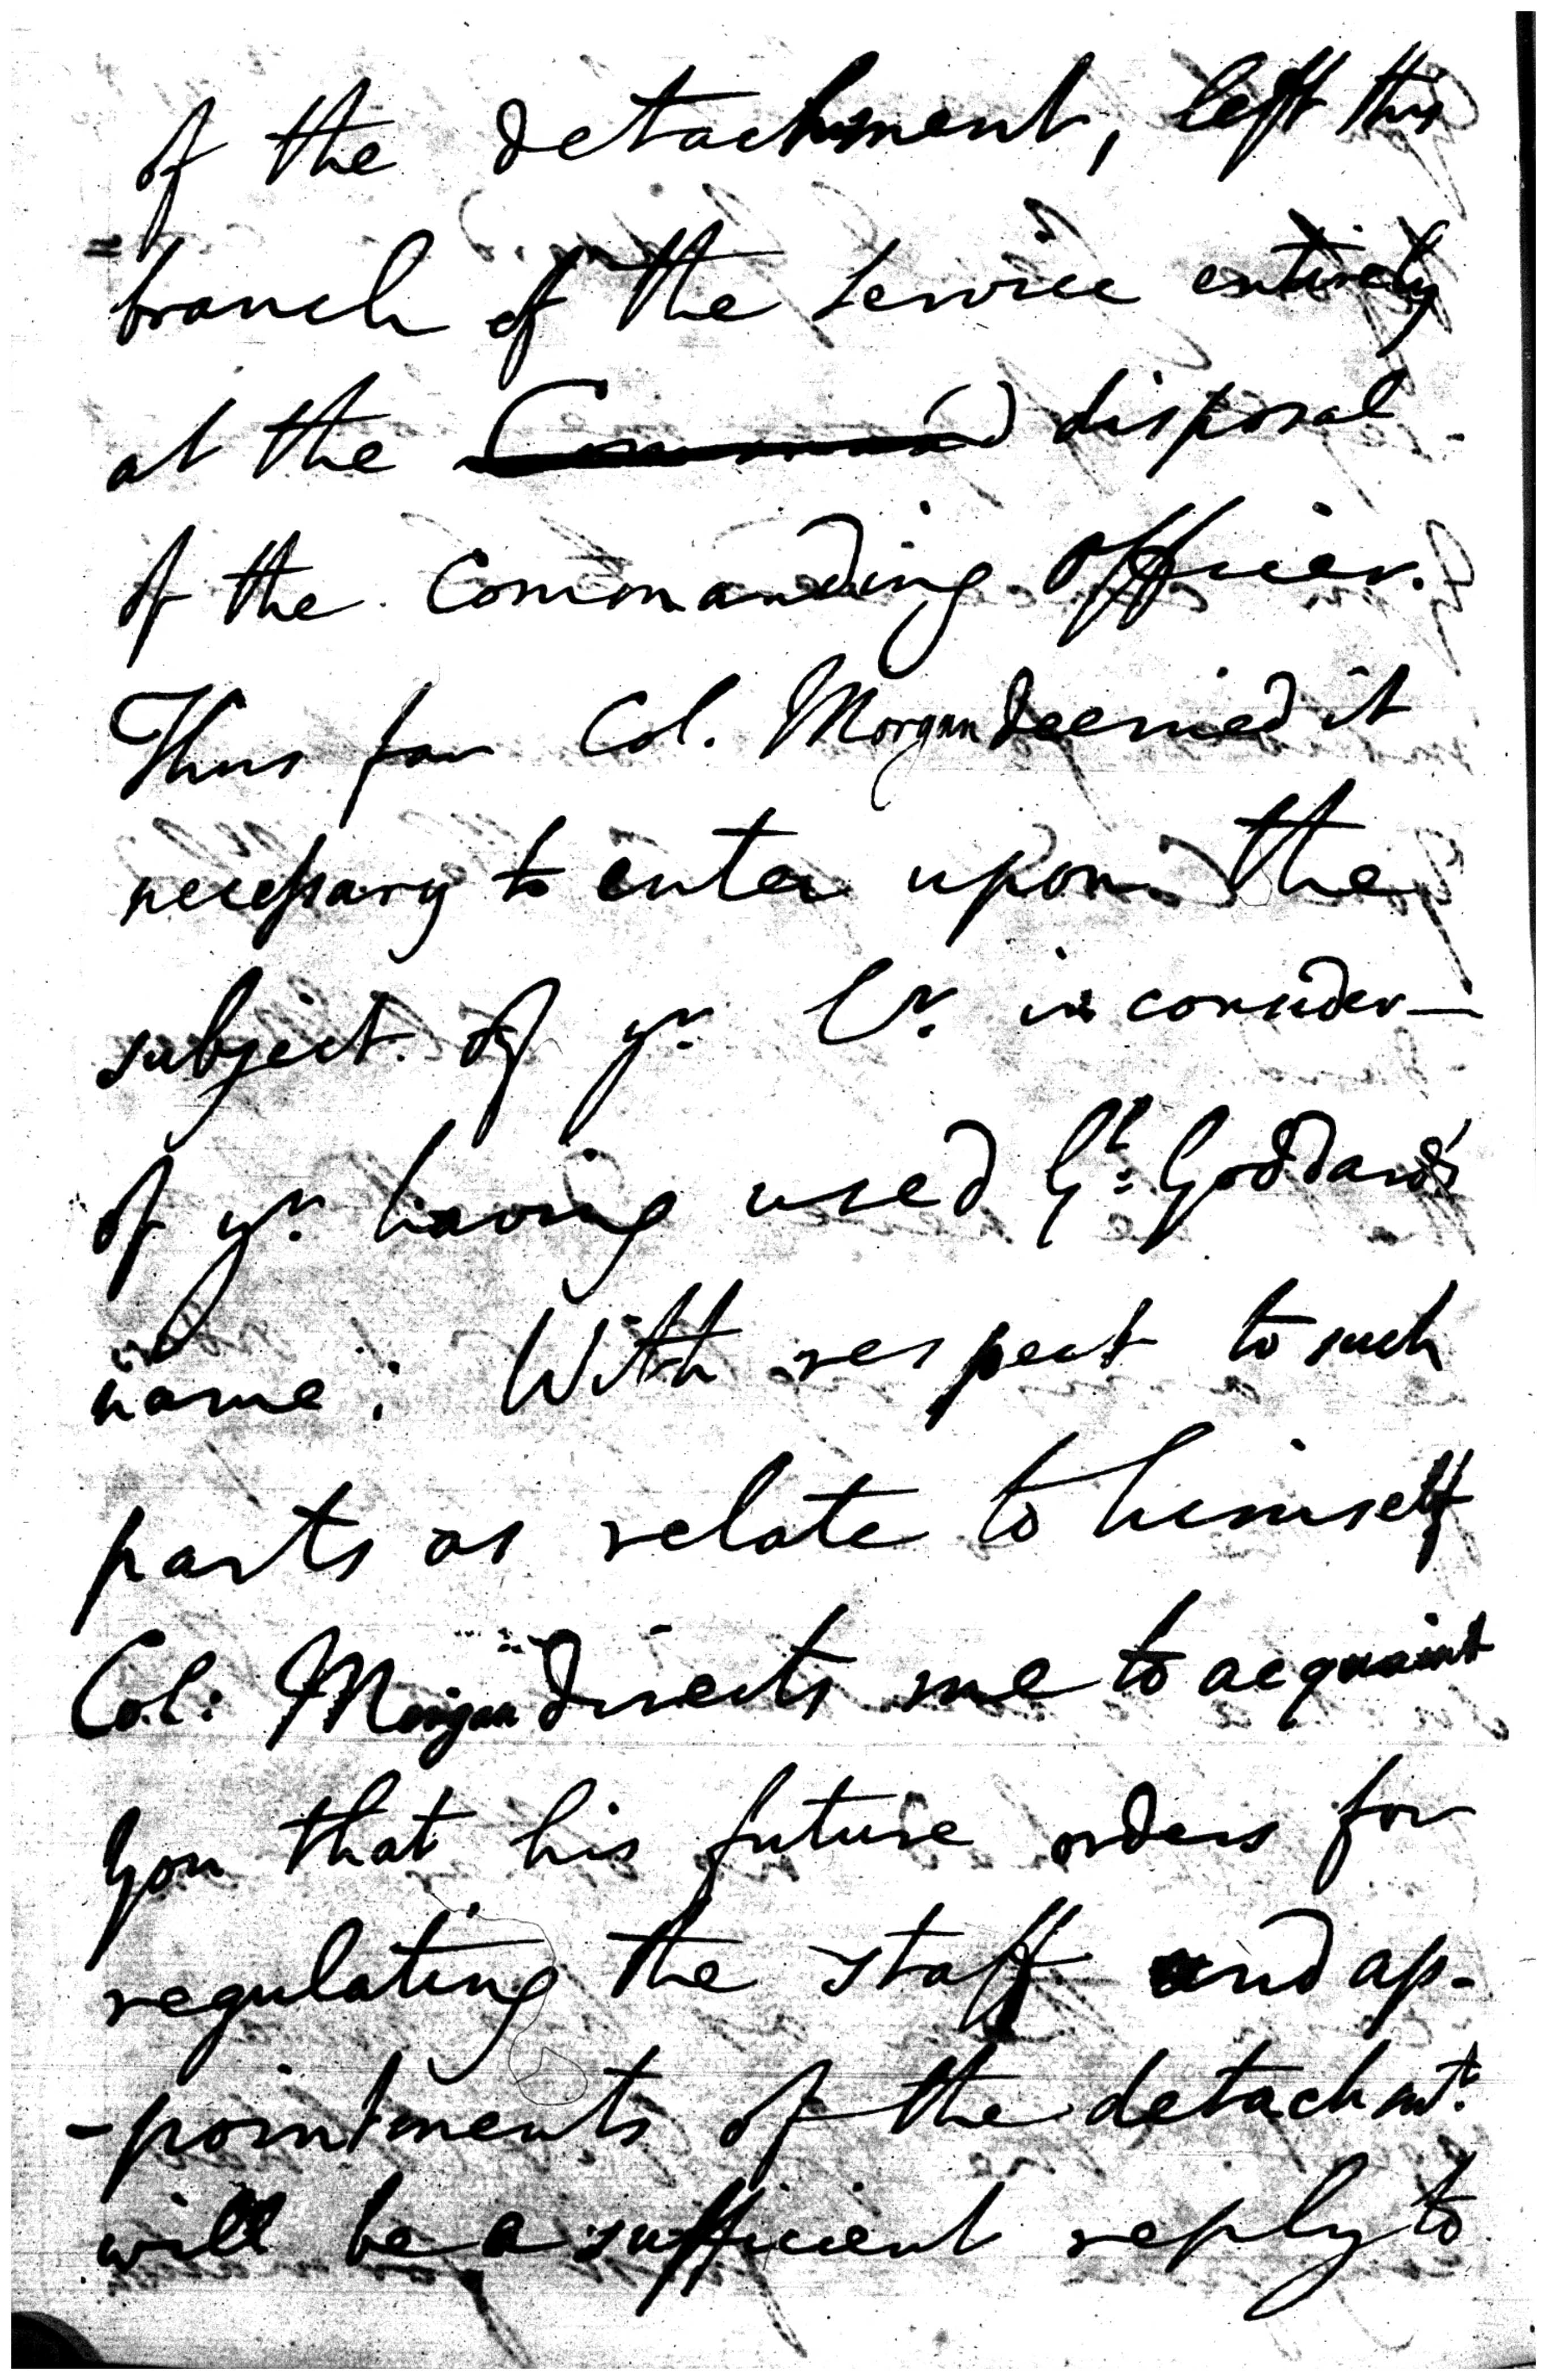 of the detachment, left this
branch of the service entirely
at the Command disposal
of the Commanding Officer.
Thus far Col. Morgan deemed it
necessary to enter upon the
subject of yr. Lr. in consider—
of yr. having used Gl: Goddard's
name: With respect to such
parts as relate to himself
Col: Morgan directs me to acquaint
you that his future orders for
regulating the staff and ap-
-pointments of the detachmt.
will be a sufficient reply to